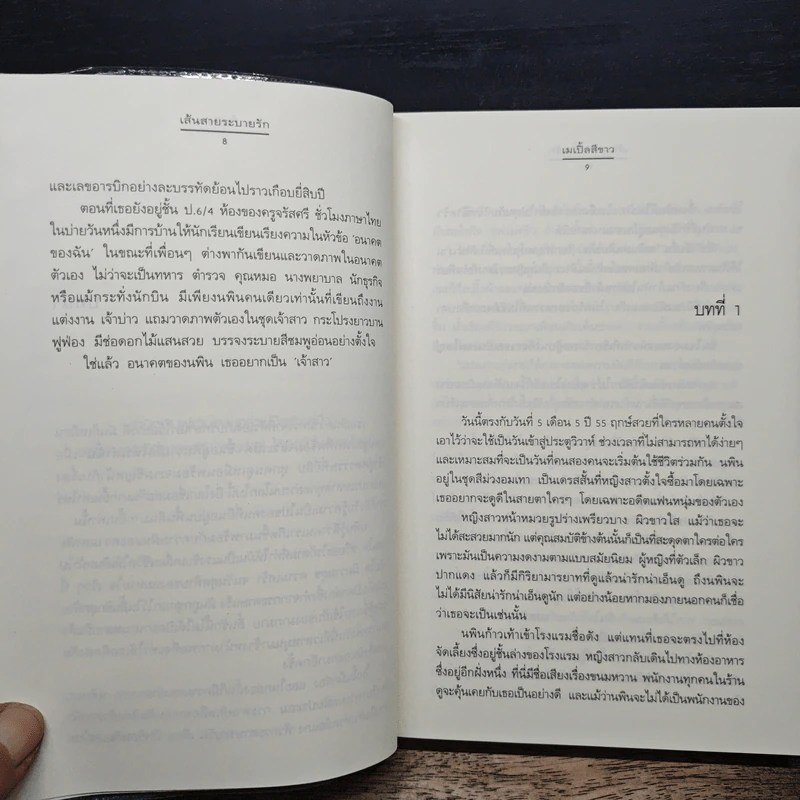 เส้นสายระบายรัก
8
และเลขอารบิกอย่างละบรรทัดย้อนไปราวเกือบยี่สิบปี
ตอนที่เธอยังอยู่ชั้น ป.6/4 ห้องของครูจรัสศรี ชั่วโมงภาษาไทย
ในบ่ายวันหนึ่งมีการบ้านให้นักเรียนเขียนเรียงความในหัวข้อ ‘อนาคต
ของฉัน’ ในขณะที่เพื่อนๆ ต่างพากันเขียนและวาดภาพในอนาคต
ตัวเอง ไม่ว่าจะเป็นทหาร ตำรวจ คุณหมอ นางพยาบาล นักธุรกิจ
หรือแม้กระทั่งนักบิน มีเพียงนพินคนเดียวเท่านั้นที่เขียนถึงงาน
แต่งงาน เจ้าบ่าว แถมวาดภาพตัวเองในชุดเจ้าสาว กระโปรงยาวบาน
ฟูฟ่อง มีช่อดอกไม้แสนสวย บรรจงระบายสีชมพูอ่อนอย่างตั้งใจ
ใช่แล้ว อนาคตของนพิน เธออยากเป็น ‘เจ้าสาว’
เมเปิ้ลสีขาว
9
บทที่ 1
วันนี้ตรงกับวันที่ 5 เดือน 5 ปี 55 ฤกษ์สวยที่ใครหลายคนตั้งใจ
เอาไว้ว่าจะใช้เป็นวันเข้าสู่ประตูวิวาห์ ช่วงเวลาที่ไม่สามารถหาได้ง่ายๆ
และเหมาะสมที่จะเป็นวันที่คนสองคนจะเริ่มต้นใช้ชีวิตร่วมกัน นพิน
อยู่ในชุดสีม่วงอมเทา เป็นเดรสสั้นที่หญิงสาวตั้งใจซื้อมาโดยเฉพาะ
เธออยากจะดูดีในสายตาใครๆ โดยเฉพาะอดีตแฟนหนุ่มของตัวเอง
หญิงสาวหน้าหมวยรูปร่างเพรียวบาง ผิวขาวใส แม้ว่าเธอจะ
ไม่ได้สะสวยมากนัก แต่คุณสมบัติข้างต้นนั้นก็เป็นที่สะดุดตาใครต่อใคร
เพราะมันเป็นความงดงามตามแบบสมัยนิยม ผู้หญิงที่ตัวเล็ก ผิวขาว
ปากแดง แล้วก็มีกิริยามารยาทที่ดูแล้วน่ารักน่าเอ็นดู ถึงนพินจะ
ไม่ได้มีนิสัยน่ารักน่าเอ็นดูนัก แต่อย่างน้อยหากมองภายนอกคนก็เชื่อ
ว่าเธอจะเป็นเช่นนั้น
นพินก้าวเท้าเข้าโรงแรมชื่อดัง แต่แทนที่เธอจะตรงไปที่ห้อง
จัดเลี้ยงซึ่งอยู่ชั้นล่างของโรงแรม หญิงสาวกลับเดินไปทางห้องอาหาร
ซึ่งอยู่อีกฝั่งหนึ่ง ที่นี่มีชื่อเสียงเรื่องขนมหวาน พนักงานทุกคนในร้าน
ดูจะคุ้นเคยกับเธอเป็นอย่างดี และแม้ว่านพินจะไม่ได้เป็นพนักงานของ